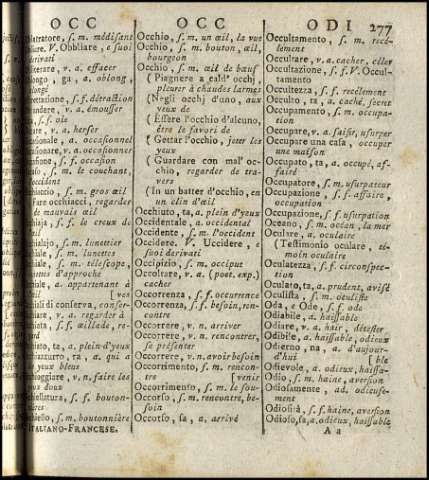 OCC OCC ODI 277
Obtrettatore, s. m. médisant
Obbliare, V. Obbliare, e suoi
derivati
Obliterare, v. a. effacer
Oblongo, ga, a. oblong,
alongé
s. f. détraction
v. a. émousser
s. f. oie
v. a. herser
a. occasionnel
v. a. occasionner
s. f. occasion
s. m. le couchant,
l'occident
s. m. gros œil
Fare occhiacci, regarder
de mauvais œil
s. f. le creux de
œil
Occhialajo, s. m. lunettier
Occhiale, s. m. lunettes
Occhiale, s. m. télescope,
lunettes d'approche
Occhiale, a. appartenant à
l'œil [ves
Occhiali di conserva, conser-
Occhiare, v. a. regarder à
Occhiata, s. f. œillade, re-
gard
ta, a. plein d'yeux
Occhiazzurro, ra, a. qui a
les yeux bleus
Occhieggiare, v. n. faire les
yeux doux
Occhiellatura, s. f. bouton-
nières
Occhiello, s. m. boutonnière
ITALIANO-FRANCESE.
Occhio, s. m. un œil, la vue
Occhio, s. m. bouton, œil,
bourgeon
Occhio, s. m. œil de bœuf
( Piagnere a cald' occhj,
pleurer à chaudes larmes
( Negli occhj d'uno, aux
yeux de
( Essere l'occhio d'alcuno,
être le favori de
( Gettar l'occhio, jeter les
yeux
( Guardare con mal' oc-
chio, regarder de tra-
vers
( In un batter d'occhio, en
un clin d'œil
Occhiuto, ta, a. plein d'yeux
Occidentale, a. occidental
Occidente, s. m. l'occident
Occidere. V. Uccidere, e
suoi derivati
Occipizio, s. m. occiput
Occoltare, v. a. (poet. exp.)
cacher
Occorrenza, s. f. occurrence
Occorrenza, s. f. besoin, ren-
contre
Occorrere, v. n. arriver
Occorrere, v. n. rencontrer,
se présenter
Occorrere, v. n. avoir besoin
Occorrimento, s. m. rencon-
tre [venir
Occorrimento, s. m. le sou-
Occorso, s. m. rencontre, be-
soin
Occorso, sa, a. arrivé
Occultamento, s. m. recé-
lement
Occultare, v. a. cacher, céler
Occultazione, s. f. V. Occul-
tamento
Occultezza, s. f. recèlement
Occulto, ta, a. caché, secret
Occupamento, s. m. occupa-
tion
Occupare, v. a. saisir, usurper
Occupare una casa, occuper
une maison
Occupato, ta, a. occupé, af-
fairé
Occupatore, s. m. usurpateur
Occupazione, s. f. affaire,
occupation
Occupazione, s. f. usurpation
Oceano, s. m. océan, la mer
Oculare, a. oculaire
( Testimonio oculare, té-
moin oculaire
Oculatezza, s. f. circonspec-
tion
Oculato, ta, a. prudent, avisé
Oculista, s. m. oculiste
Oda, e Ode, s. f. ode
Odiabile, a. haïssable
Odiare, v. a. haïr, détester
Odibile, a. haïssable, odieux
Odierno, na, a. d'aujour-
d'hui [ble
Odievole, a. odieux, haïssa-
Odio, s. m. haine, aversion
Odiosamente, ad. odieuse-
ment
Odiosità, s. f. haine, aversion
Odioso, sa, a. odieux, haïssable
A a